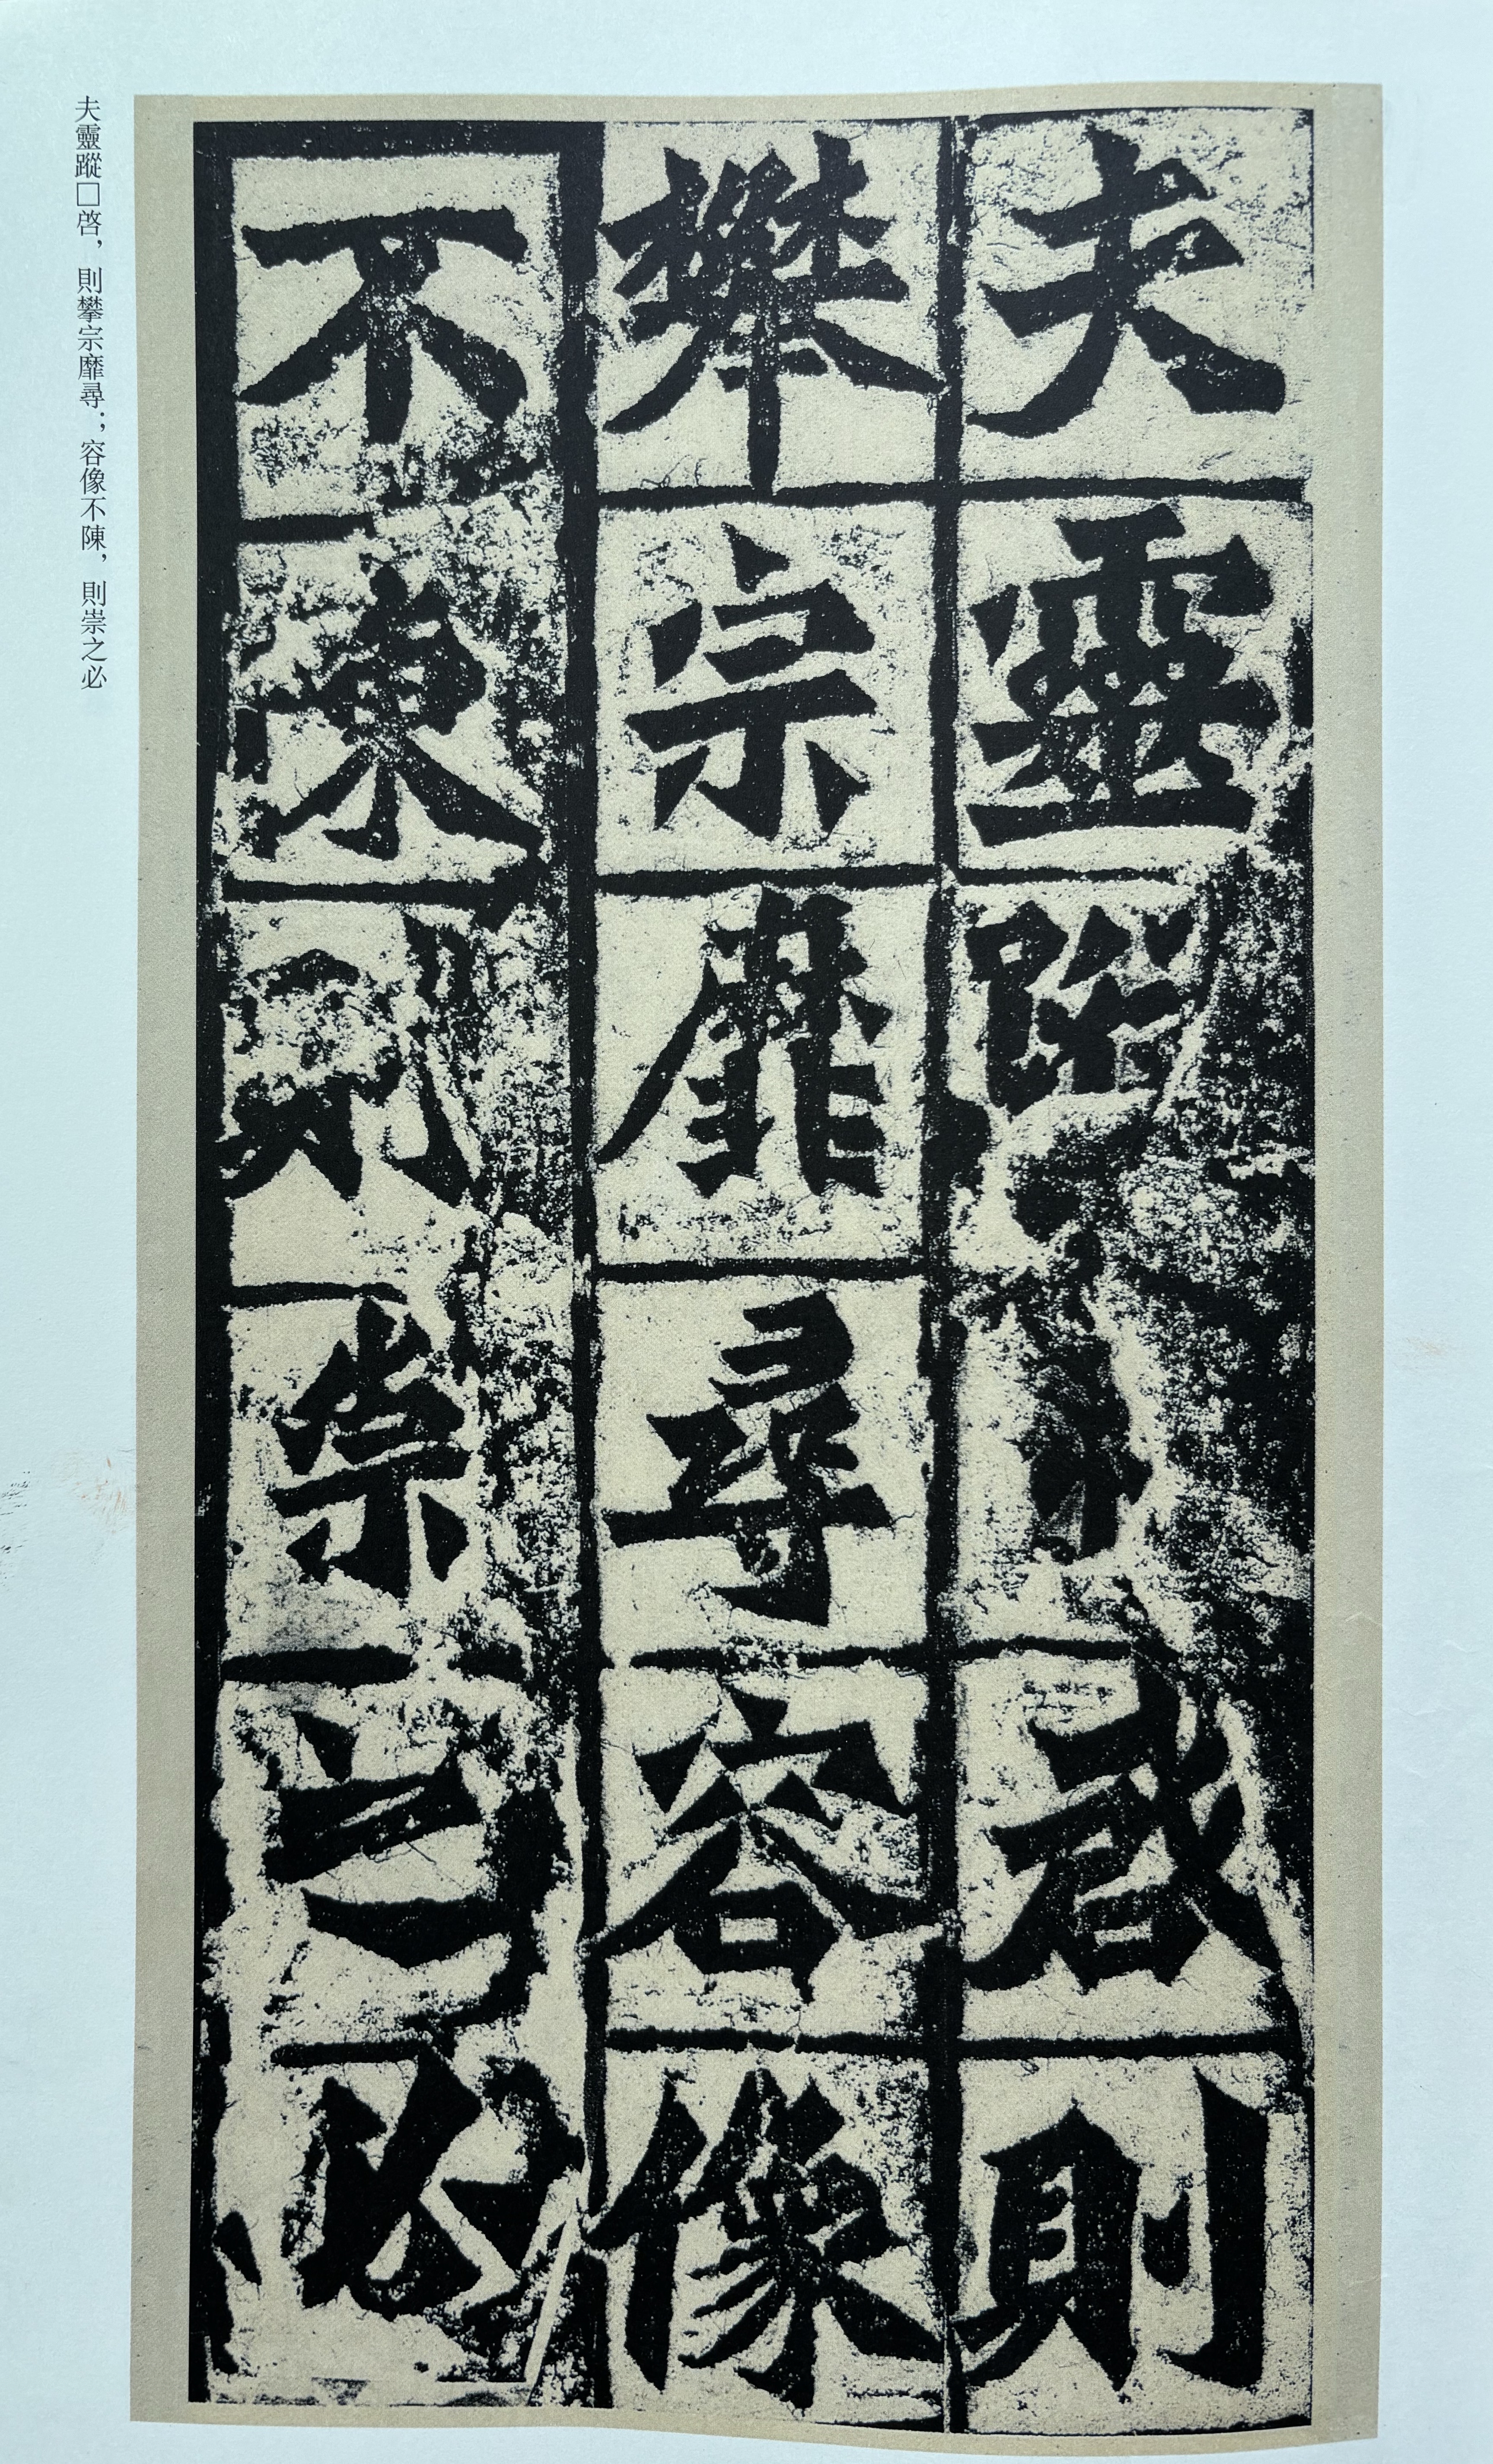 夫靈蹤啓則
攀宗靡尋容像
不陳則崇之必
夫靈蹤□啓，則攀宗靡尋；容像不陳，則崇之必